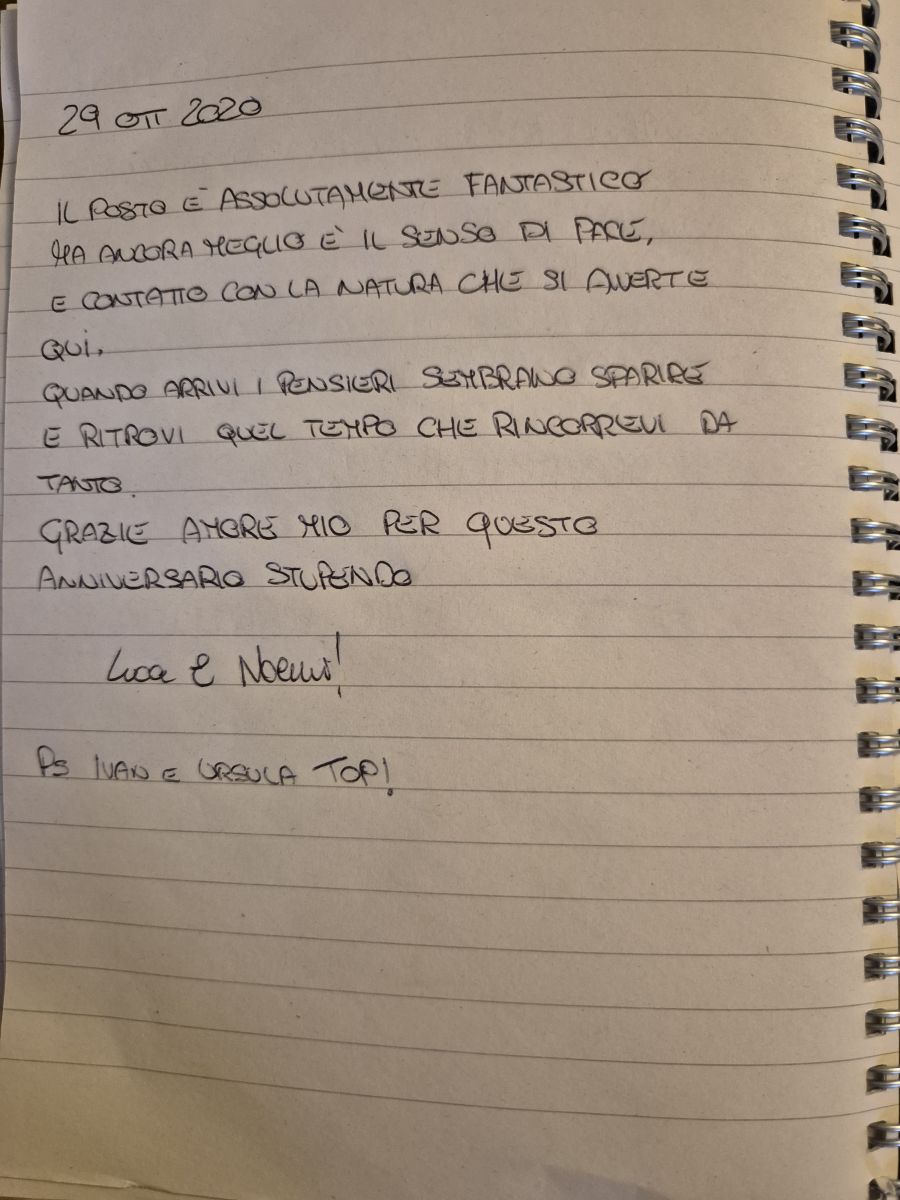 29 OTT 2020
IL POSTO È ASSOLUTAMENTE FANTASTICO
MA ANCORA MEGLIO È IL SENSO DI PACE,
E CONTATTO CON LA NATURA CHE SI AVVERTE
QUI.
QUANDO ARRIVI I PENSIERI SEMBRANO SPARIRE
E RITROVI QUEL TEMPO CHE RINCORREVI DA
TANTO.
GRAZIE AMORE MIO PER QUESTO
ANNIVERSARIO STUPENDO
Luca e Noemi!
PS IVAN E URSULA TOP!